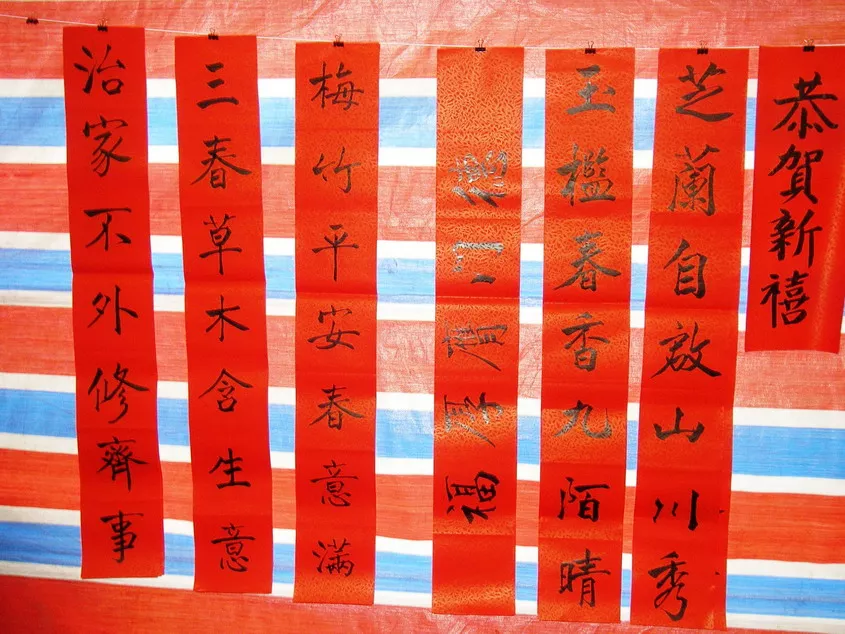 恭賀新禧
芝蘭自啟山川秀
玉檻春香九陌晴
門厚福
梅竹平安春意滿
三春草木含生意
治家不外修齊事